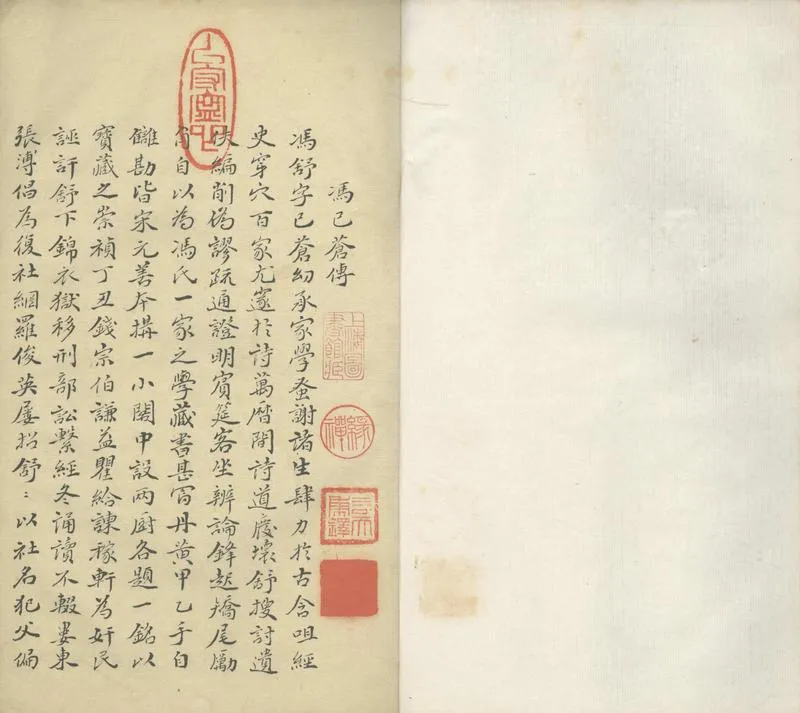 馮已蒼傳
馮舒字已蒼幼承家學蚤謝諸生肆力於古含咀經
史穿穴百家尤邃於詩萬曆間詩道廢壞舒搜討遺
佚編削譌謬疏通證明賓筵客坐辨論鋒起矯尾勵
角自以為馮氏一家之學藏書甚富丹黃甲乙手自
讎勘皆宋元善本搆一小閣中設兩廚各題一銘以
寶藏之崇禎丁丑錢宗伯謙益瞿給諫稼軒為奸民
誣訐舒下錦衣獄移刑部訟繫經冬誦讀不輟婁東
張溥倡為復社網羅俊英屢招舒〻以社名犯父偏
上海圖書館臧